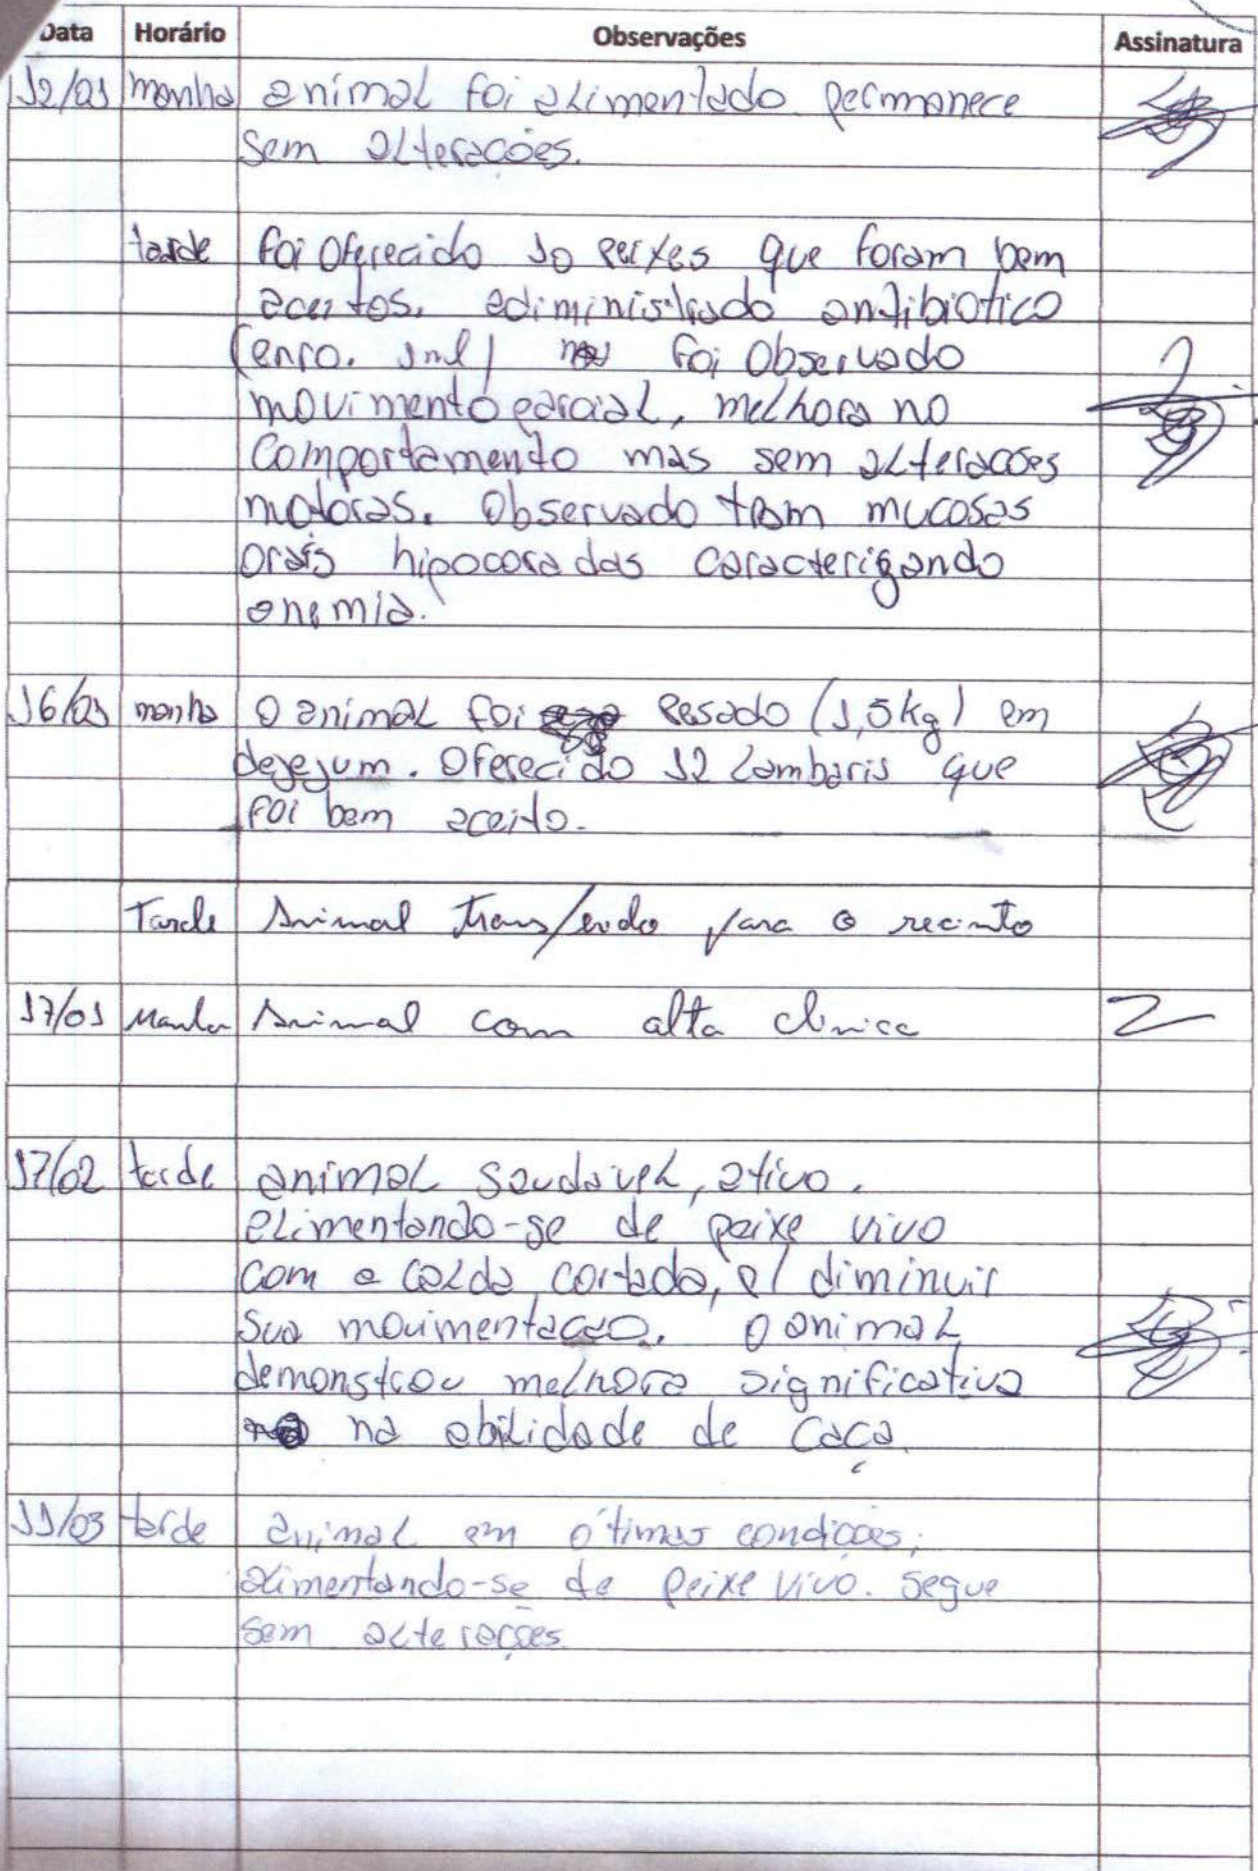 Data Horário Observações Assinatura
12/01 manha animal foi alimentado permanece
sem alterações.
tarde foi oferecido 10 peixes que foram bem
aceitos. adiministrado antibiotico
(enro. 1ml) foi observado
movimento parcial, melhora no
comportamento mas sem alteracoes
motoras. Observado tbam mucosas
orais hipocoradas caracterizando
anemia.
16/01 manha O animal foi pesado (1,5kg) em
dejejum. Oferecido 12 Lambaris que
foi bem aceito.
Tarde Animal transferido para o recinto
17/01 Manha Animal com alta clinica
17/02 tarde animal saudavel, ativo.
alimentando-se de peixe vivo
com a calda cortada, p/ diminuir
sua movimentacao. O animal
demonstrou melhora significativa
na abilidade de caça.
11/03 tarde animal em ótimas condições;
alimentando-se de peixe vivo. segue
sem alterações.